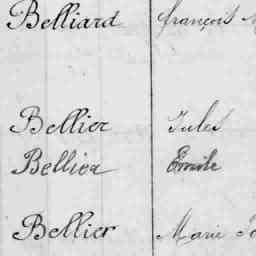 Belliard françois
Bellier Jules
Bellier Emile
Bellier Marie